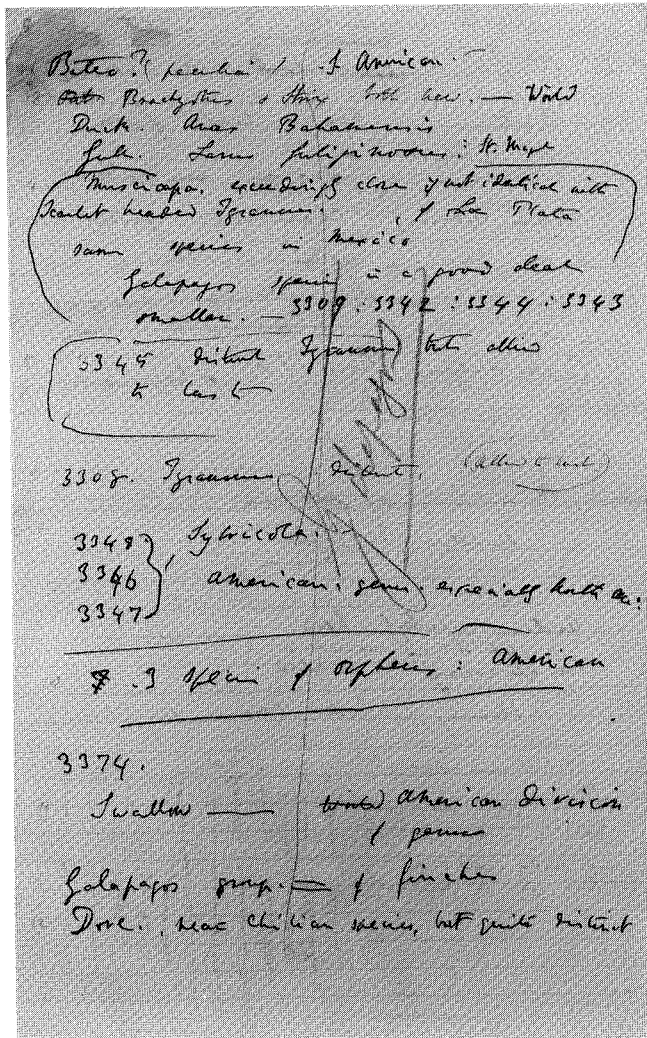 Buteo? peculiar of American
Brachyotus & Strix both new. — World
Duck. Anas Bahamensis
Gull. Larus fuliginosus: St. Magell
Muscicapa. exceedingly close if not identical with
Scarlet headed Tyrannus. of La Plata
same species in Mexico
Galapagos species is a good deal
smaller. — 3309 : 3342 : 3344 : 3343
3345 distinct Tyrannus but allied
to last
3308. Tyrannus distinct. (allied to last)
3348
3346
3347
Sylvicola.
American: genus. especially North Am:
3 species of orpheus: American
3374.
Swallow — American division
of genus
Galapagos group. — of finches
Dove. near Chilian species, but quite distinct
Galapagos